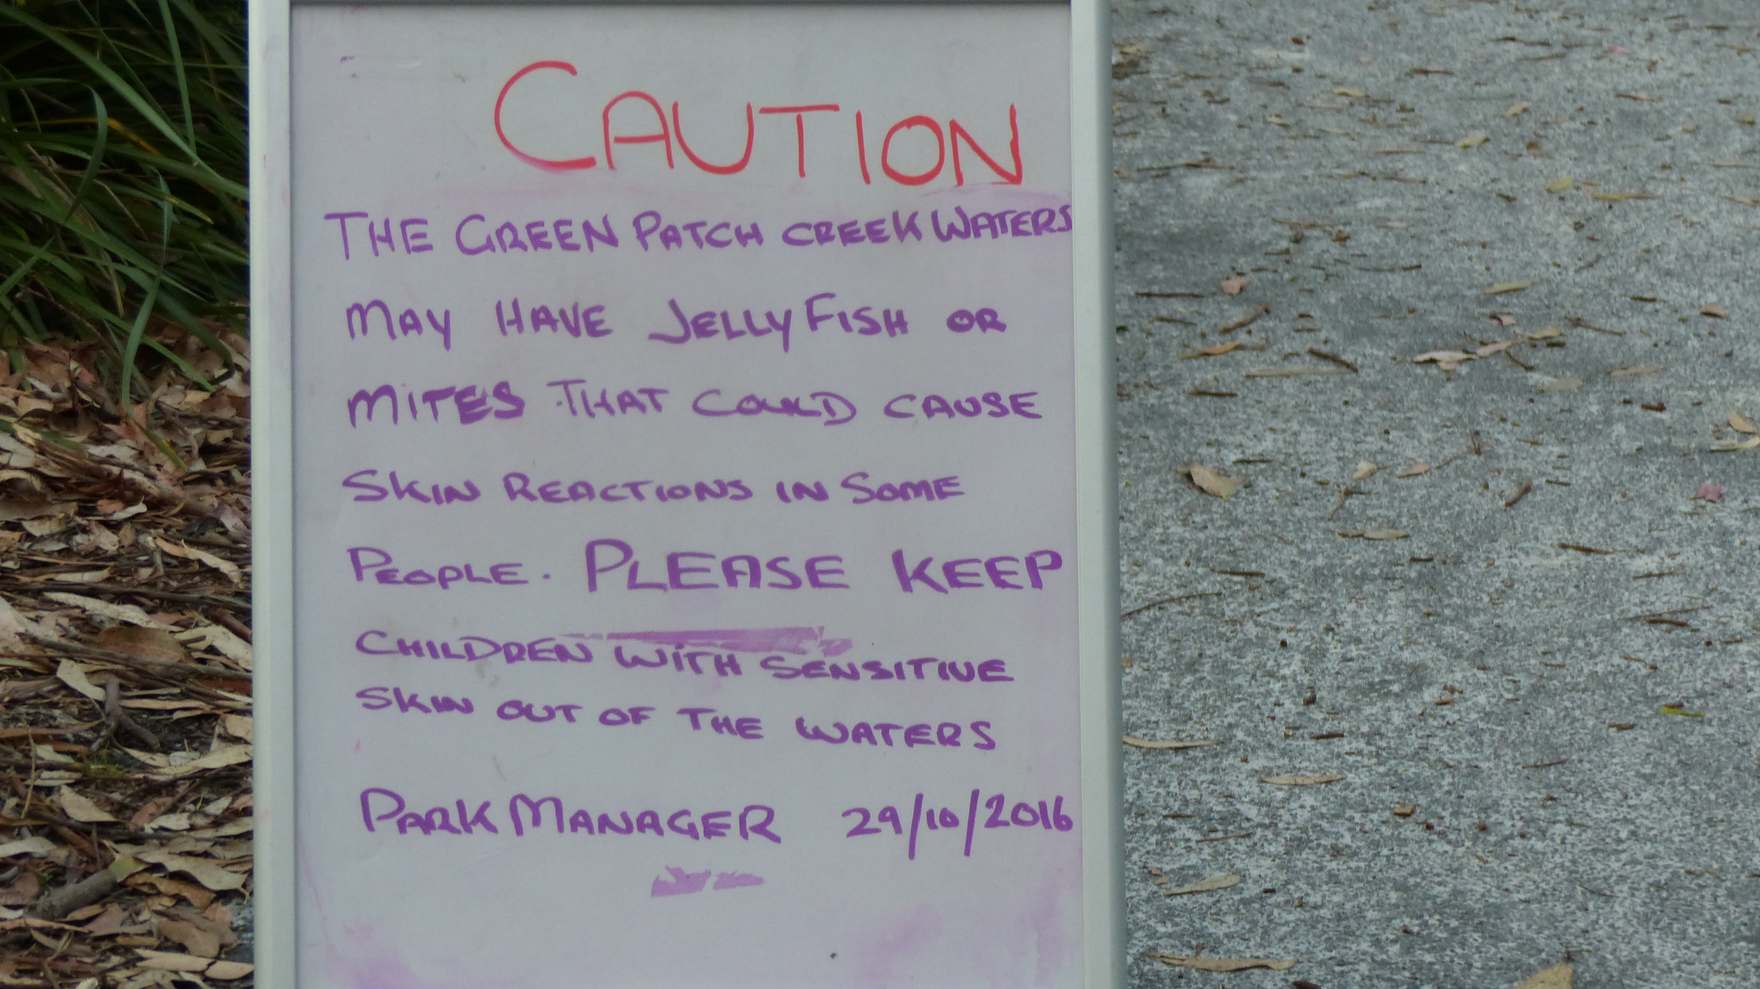 CAUTION
THE GREEN PATCH CREEK WATERS
MAY HAVE JELLY FISH OR
MITES THAT COULD CAUSE
SKIN REACTIONS IN SOME
PEOPLE. PLEASE KEEP
CHILDREN WITH SENSITIVE
SKIN OUT OF THE WATERS
PARK MANAGER 29/10/2016